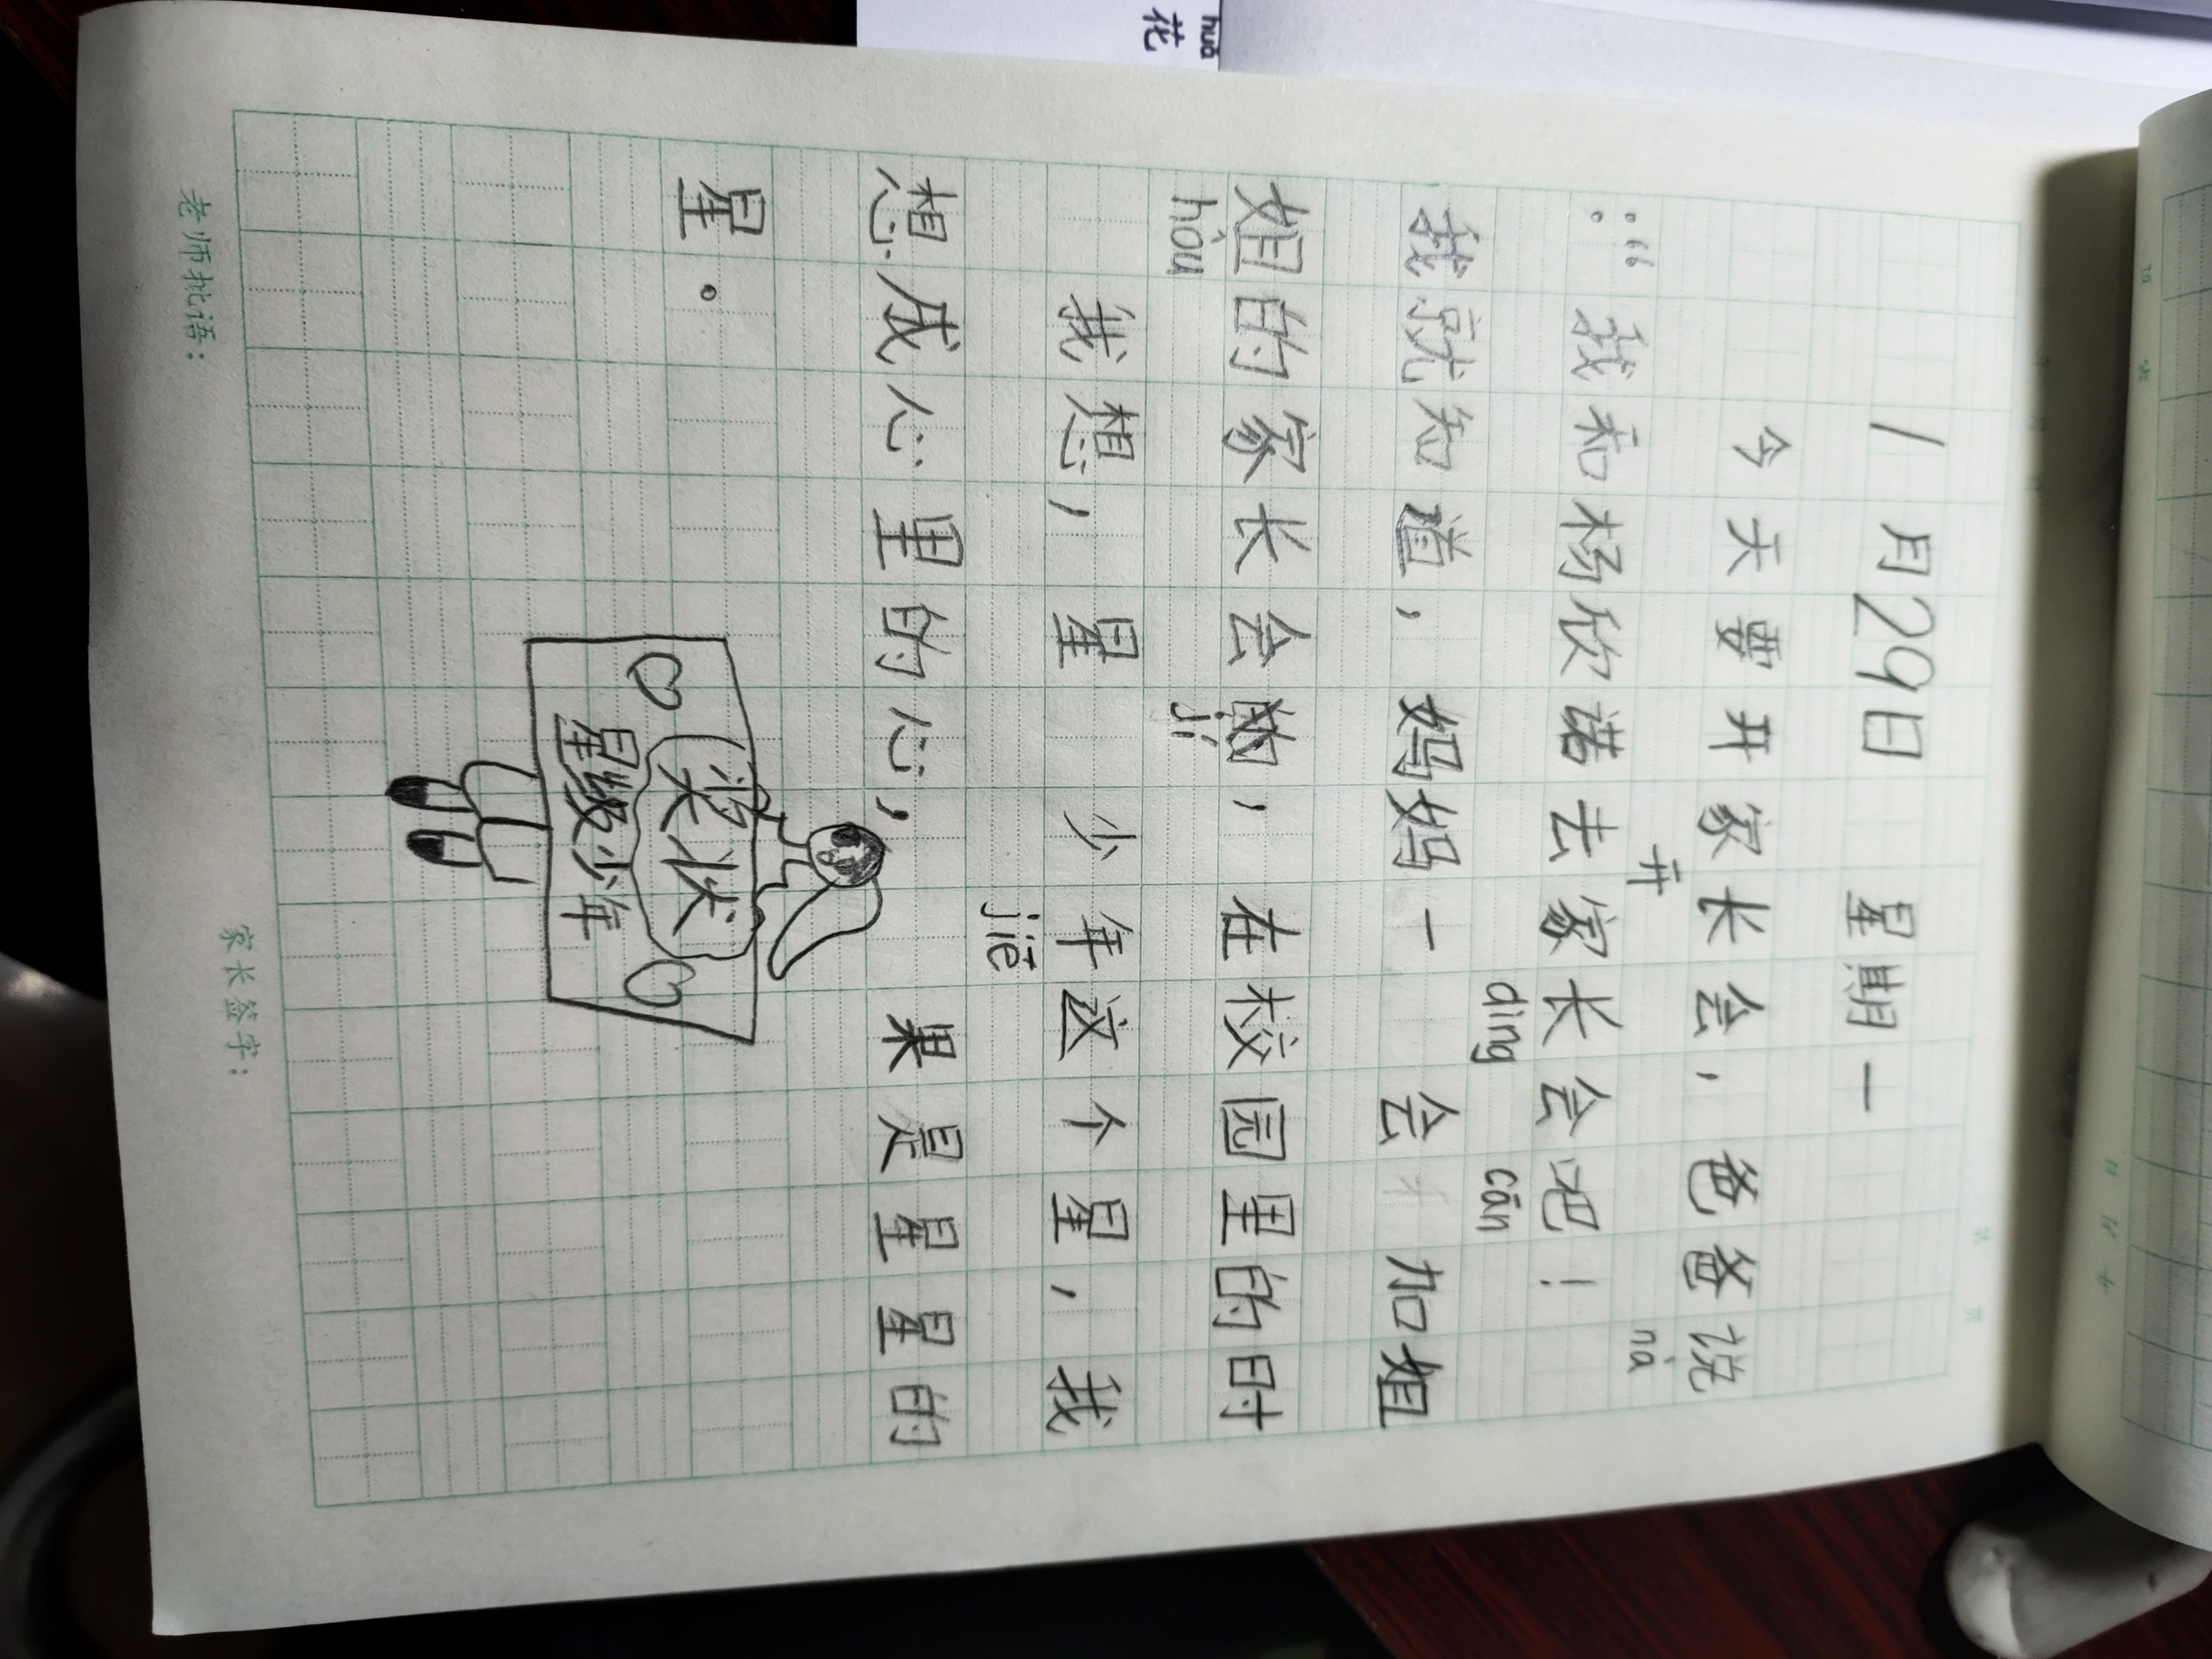 huā
花
1月29日 星期一
今天要开家长会，爸爸说
开 nà
：“我和杨欣诺去家长会吧！
dìng cān
我就知道，妈妈一 会 加姐
姐的家长会的，在校园里的时
hòu jí
我想，星 少年这个星，我
jiē
想成心里的心， 果是星星的
星。
奖状
星级少年
老师批语： 家长签字：